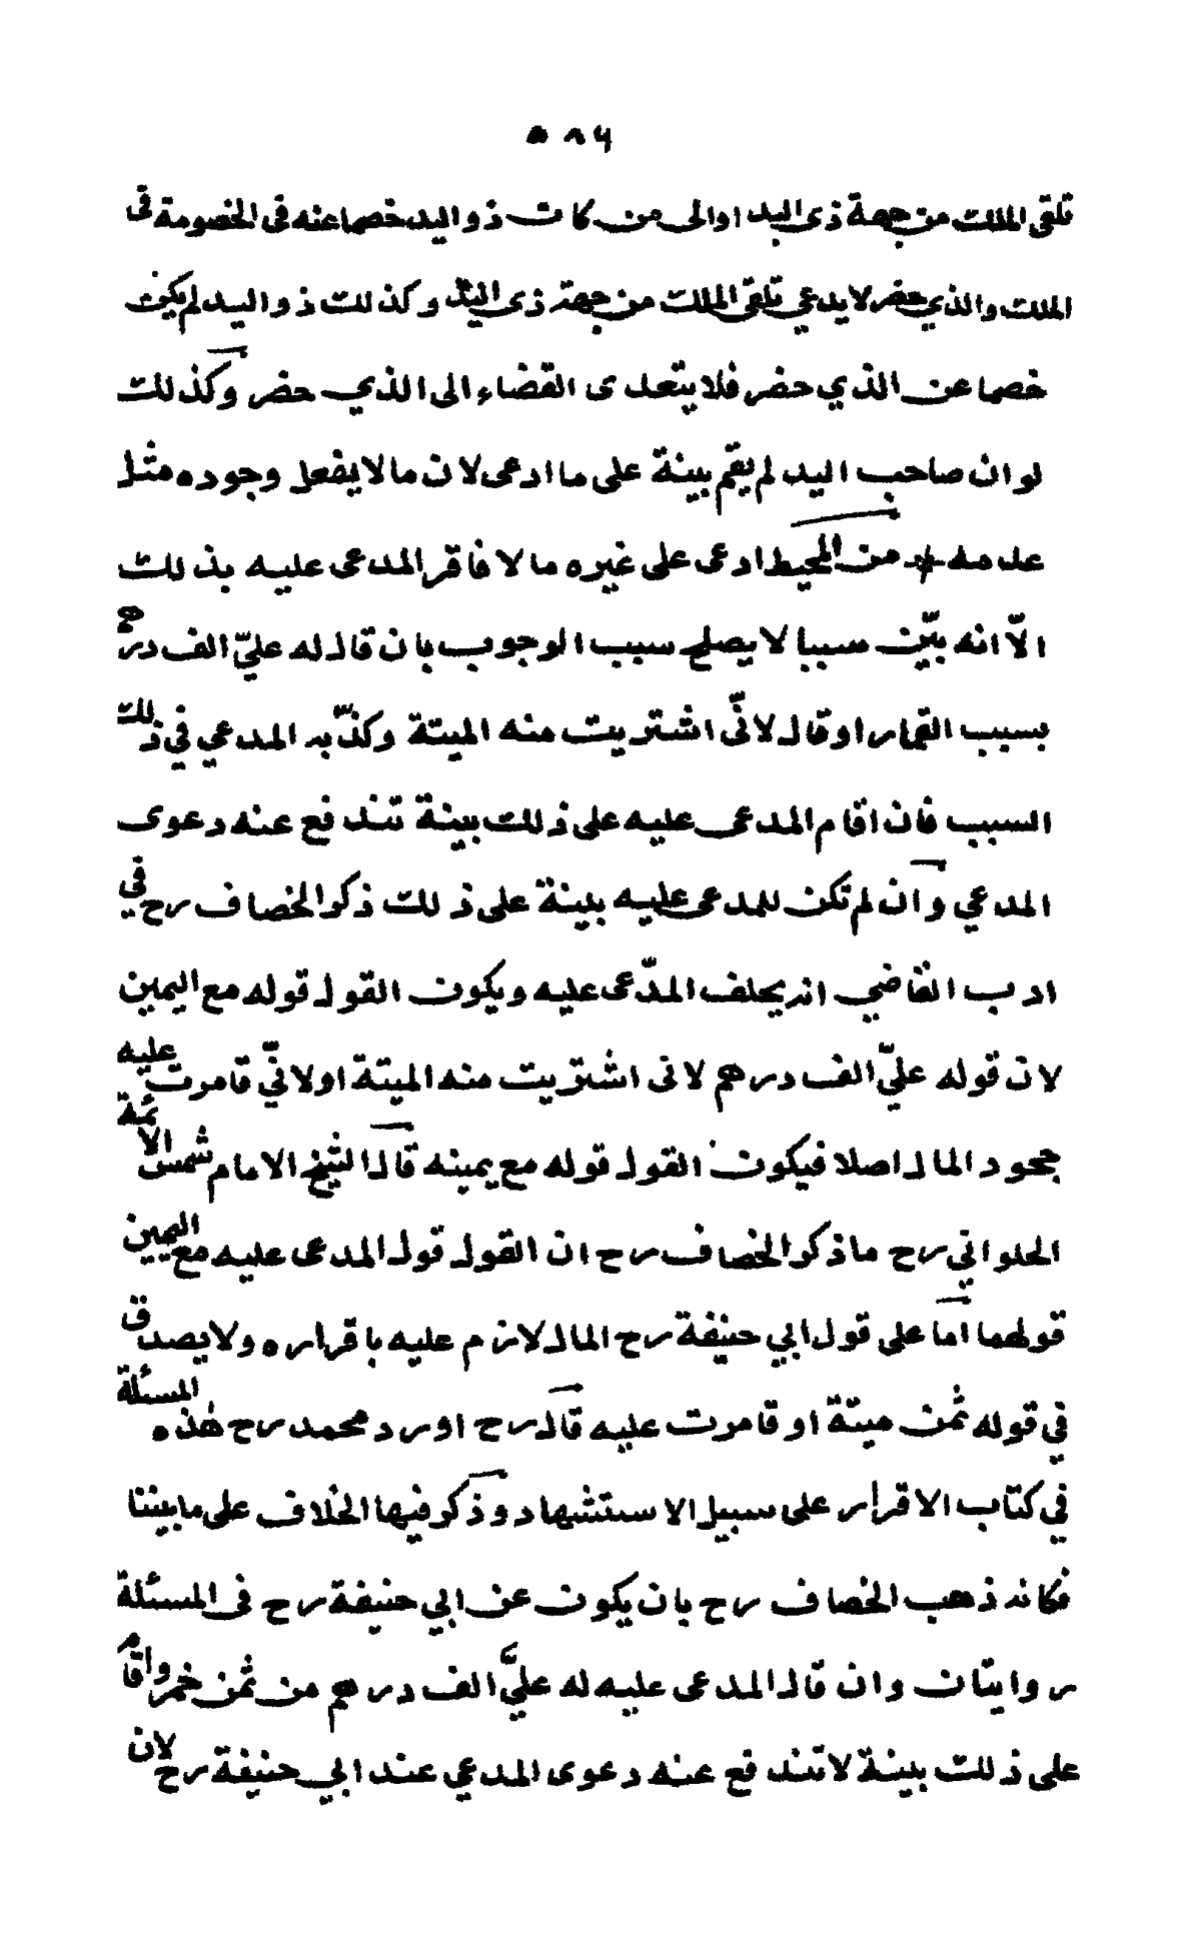 ٥٨٦
تلقى الملك من جهة ذى اليد او الى من كان ذو اليد خصما عنه فى الخصومة فى
الملك والذي حضر لا يدعي تلقى الملك من جهة ذى اليد وكذلك ذو اليد لم يكن
خصما عن الذي حضر فلا يتعدى القضاء الى الذي حضر وكذلك
لو ان صاحب اليد لم يقم بينة على ما ادعى لان ما لا يفعل وجوده مثل
عدمه # من المحيط ادعى على غيره مالا فاقر المدعى عليه بذلك
الّا انه بيّن سببا لا يصلح سبب الوجوب بان قال له عليّ الف درهم
بسبب القمار او قال لانّى اشتريت منه الميتة وكذّبه المدعي في ذلك
السبب فان اقام المدعى عليه على ذلك بينة تندفع عنه دعوى
المدعي وان لم تكن للمدعى عليه بينة على ذلك ذكر الخصاف رح في
ادب القاضي انه يحلف المدّعى عليه ويكون القول قوله مع اليمين
لان قوله عليّ الف درهم لانى اشتريت منه الميتة او لانّي قامرت عليه
جحود المال اصلا فيكون القول قوله مع يمينه قال الشيخ الامام شمس الائمة
الحلواني رح ما ذكر الخصاف رح ان القول قول المدعى عليه مع اليمين
قولهما اما على قول ابي حنيفة رح المال لازم عليه باقراره ولا يصدق
في قوله ثمن ميتة او قامرت عليه قال رح اورد محمد رح هذه المسئلة
في كتاب الاقرار على سبيل الاستشهاد وذكر فيها الخلاف على ما بيننا
فكانه ذهب الخصاف رح بان يكون عن ابي حنيفة رح فى المسئلة
روايتان وان قال المدعى عليه له عليّ الف درهم من ثمن خمر واقام
على ذلك بينة لا تندفع عنه دعوى المدعي عند ابي حنيفة رح لان